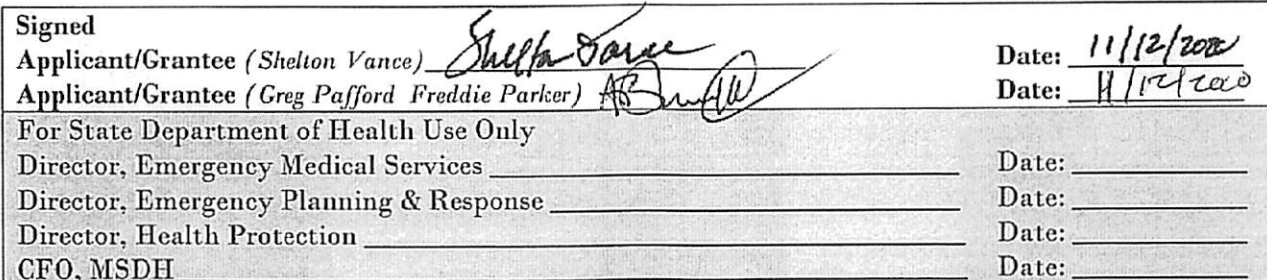 Signed
Applicant/Grantee (Shelton Vance) Shelton Vance Date: 11/12/2020
Applicant/Grantee (Greg Pafford Freddie Parker) Date: 11/12/2020
For State Department of Health Use Only
Director, Emergency Medical Services Date:
Director, Emergency Planning & Response Date:
Director, Health Protection Date:
CFO, MSDH Date: